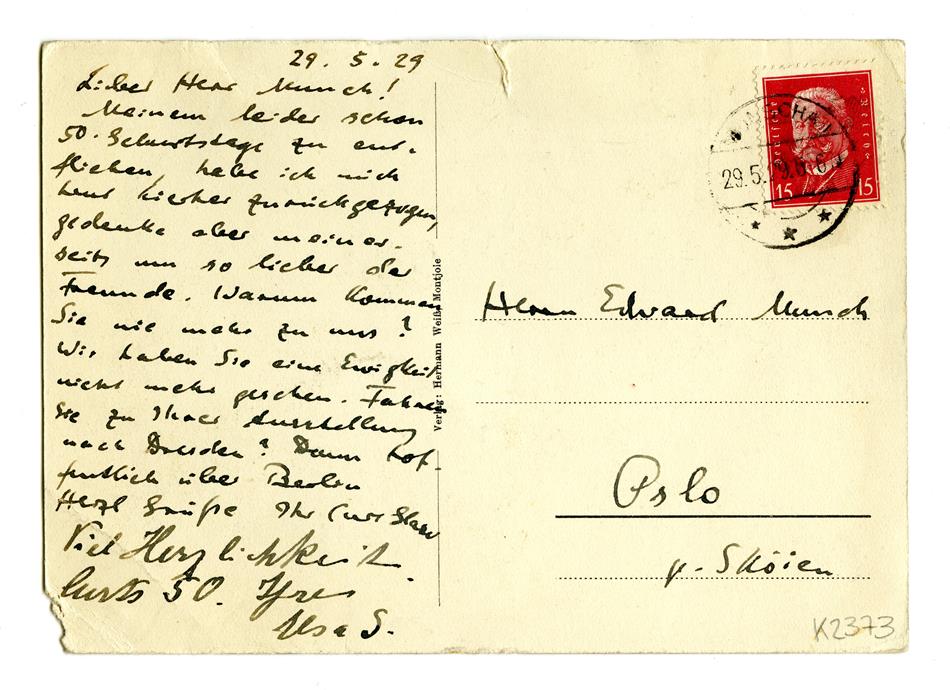 29. 5. 29
Lieber Herr Munch!
Meinem leider schon
50. Geburtstage zu ent-
fliehen, habe ich mich
hierher zurückgezogen,
gedenke aber meiner-
seits um so lieber der
Freunde. Warum kommen
Sie nie mehr zu uns?
Wir haben Sie eine Ewigkeit
nicht mehr gesehen. Fahren
Sie zu Ihrer Ausstellung
nach Dresden? Dann hof-
fentlich über Berlin
Herzl Grüße Ihr Curt Glaser
Viel Herzlichkeit
50. Ihre
Elsa G.
Verlag: Hermann Weiß, Montjoie
Deutsches Reich
15 15
29.5.
Herrn Edvard Munch
Oslo
p. Sköien
K2373